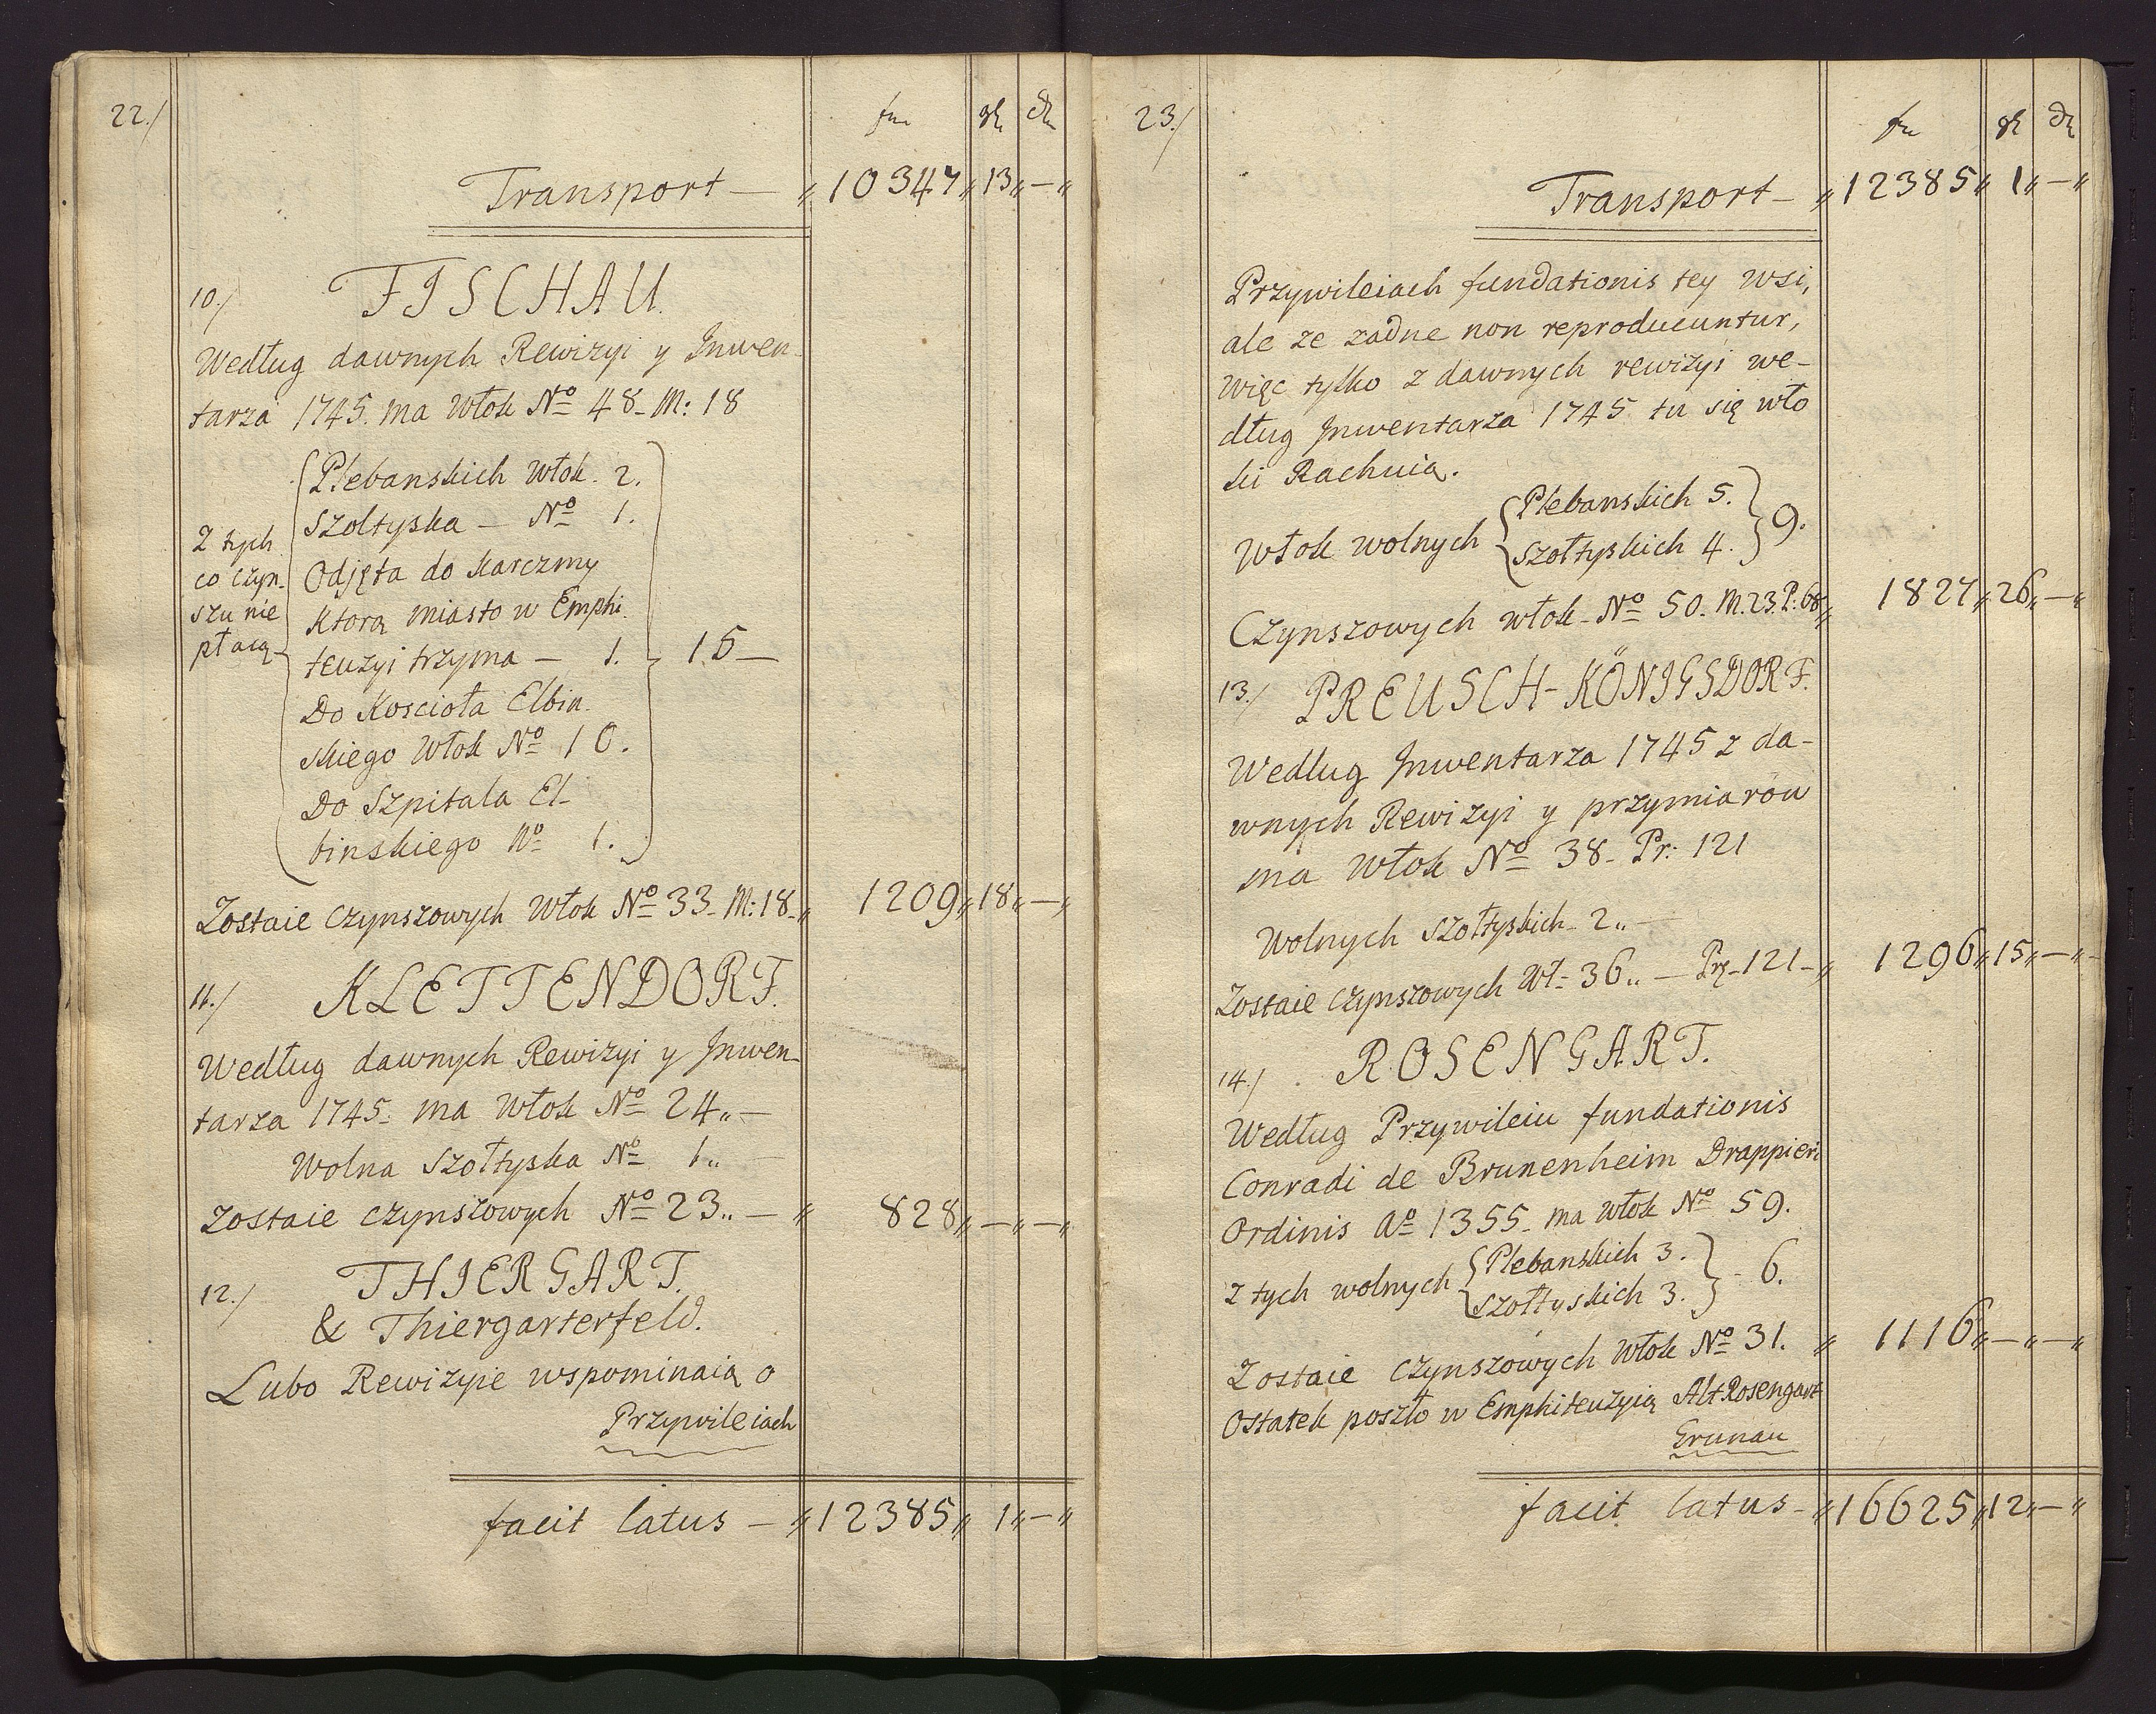 22./
fn gr dr
Transport — „ 10347 „ 13 „ — „
10./ FISCHAU.
Według dawnych Rewizyi y Inwen-
tarza 1745. ma Włok No 48 – M: 18
Z tych
co czyn-
szu nie
płacą
Plebanskich Włok. 2.
Szoltyska — No 1.
Odjęta do Karczmy
Ktorą miasto w Emphi-
teuzyi trzyma — 1.
Do Kosciola Elbin-
skiego Włok No 10.
Do Szpitala El-
binskiego No 1.
15 —
Zostaie Czynszowych Włok No 33 – M: 18 – „ 1209 „ 18 „ — „
11./ KLETTENDORF.
Według dawnych Rewizyi y Inwen-
tarza 1745. ma Włok No 24 „ —
Wolna Szołtyska No 1 „ —
Zostaie czynszowych No 23 „ — „ 828 „ — „ — „
12./ THIERGART.
& Thiergarterfeld.
Lubo Rewizyie wspominaią o
Przywileiach
facit latus — „ 12385 „ 1 „ — „
23./
fn gr dr
Transport — „ 12385 „ 1 „ — „
Przywileiach fundationis tey Wsi,
ale ze zadne non reproducuntur,
więc tylko z dawnych rewizyi we-
dług Inwentarza 1745 tu się wło
ki Rachuią.
Włok wolnych
Plebanskich 5.
Szołtyskich 4.
9.
Czynszowych włok – No 50. M. 23. P: 68 „ 1827 „ 26 „ — „
13./ PREUSCH-KÖNIGSDORF.
Wedlug Inwentarza 1745 z da-
wnych Rewizyi y przymiarów
ma Włok No 38 – Pr: 121
Wolnych Szołtyskich – 2 „ —
Zostaie czynszowych Wł – 36 „ — Pr – 121 – „ 1296 „ 15 „ — „
14./ ROSENGART.
Według Przywileiu fundationis
Conradi de Brunenheim Drappieri
Ordinis Ao 1355 – ma włok No 59.
Z tych wolnych
Plebanskich 3.
Szołtyskich 3.
– 6.
Zostaie Czynszowych Włok No 31. „ 1116 „ — „ — „
Ostatek poszło w Emphiteuzyią Alt Rosengart
Grunau
facit latus – „ 16625 „ 12 „ — „